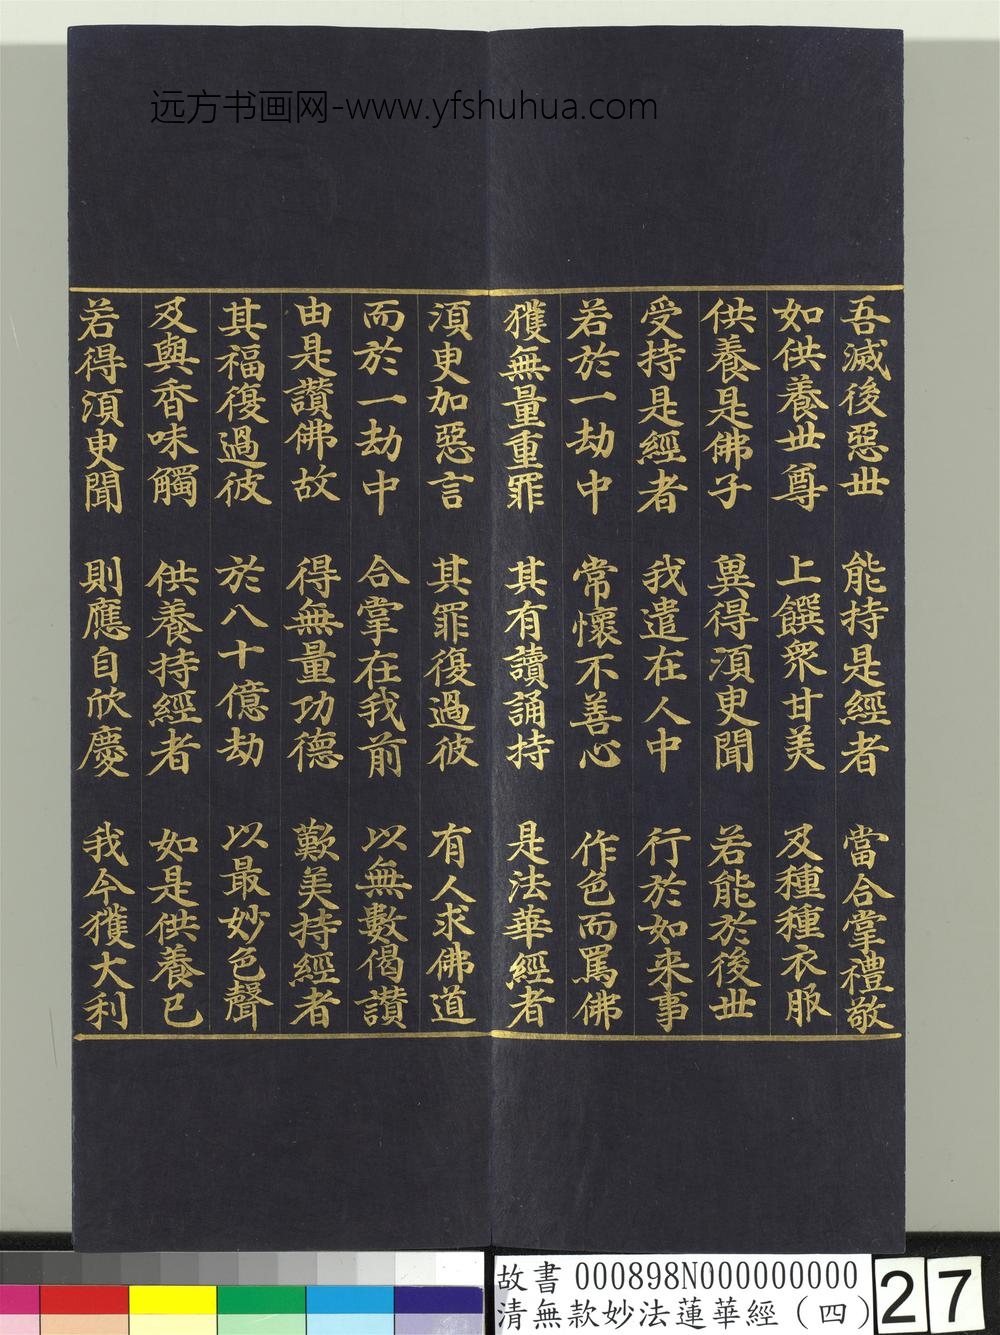 远方书画网-www.yfshuhua.com
吾滅後惡世 能持是經者 當合掌禮敬
如供養世尊 上饌衆甘美 及種種衣服
供養是佛子 兾得湏臾聞 若能於後世
受持是經者 我遣在人中 行於如来事
若於一劫中 常懷不善心 作色而罵佛
獲無量重罪 其有讀誦持 是法華經者
湏臾加惡言 其罪復過彼 有人求佛道
而於一劫中 合掌在我前 以無數偈讃
由是讃佛故 得無量功德 歎美持經者
其福復過彼 於八十億劫 以最妙色聲
及與香味觸 供養持經者 如是供養已
若得湏臾聞 則應自欣慶 我今獲大利
故書 000898N000000000
清無款妙法蓮華經（四）
27